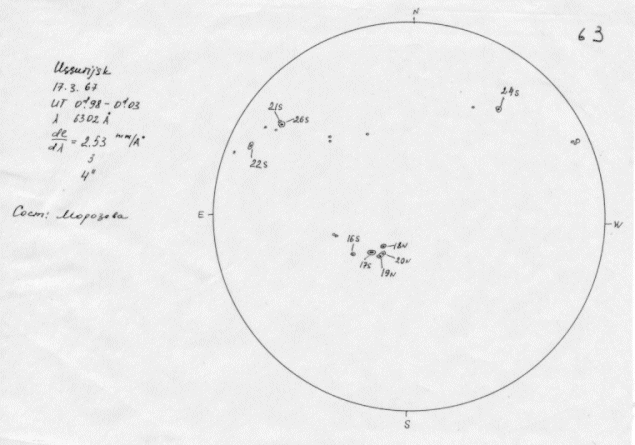 63
Ussurijsk
17.3.67
UT 0ᵈ.98 – 0ᵈ.03
λ 6302 Å
dl/dλ = 2.53 mm/A°
3
4"
Сост: Морозова
N
24S
21S
26S
22S
np
E
W
16S
18N
17S
20N
19N
S